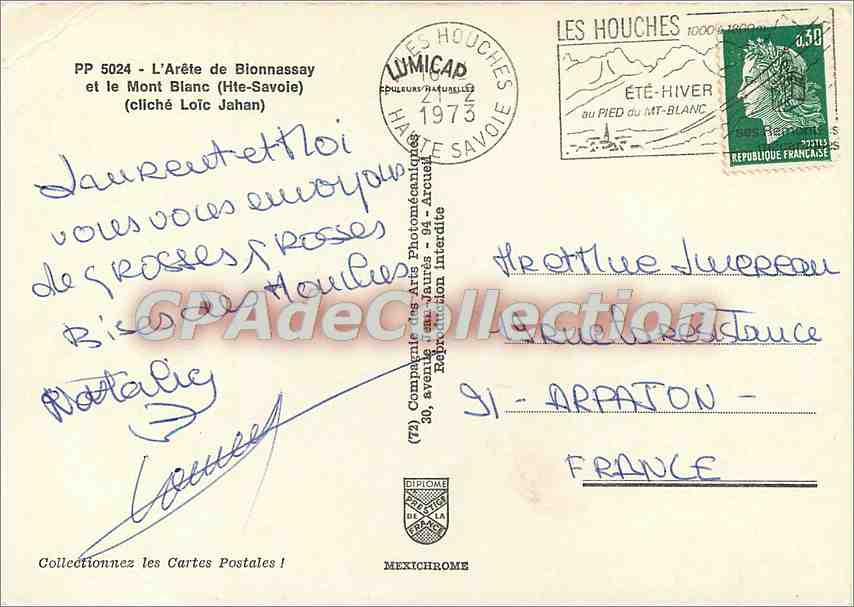 PP 5024 - L'Arête de Bionnassay
et le Mont Blanc (Hte-Savoie)
(cliché Loïc Jahan)
LUMICAP
COULEURS NATURELLES
LES HOUCHES
18 H
21-2
1973
HAUTE SAVOIE
LES HOUCHES 1000 à 1800 m
ÉTÉ-HIVER
au PIED du MT-BLANC
ses Remontées
Mécaniques
0,30
POSTES
REPUBLIQUE FRANÇAISE
Laurent et Moi
vous vous envoyons
de GROSSES GROSSES
Bises des Houches
Natalie
Laurent
(72) Compagnie des Arts Photomécaniques
30, avenue Jean-Jaurès - 94 - Arcueil
Reproduction interdite
Mr et Mme
rue la resistance
91 - ARPAJON -
FRANCE
CPAdeCollection
DIPLOME
PRESTIGE
DE LA
FRANCE
Collectionnez les Cartes Postales !
MEXICHROME